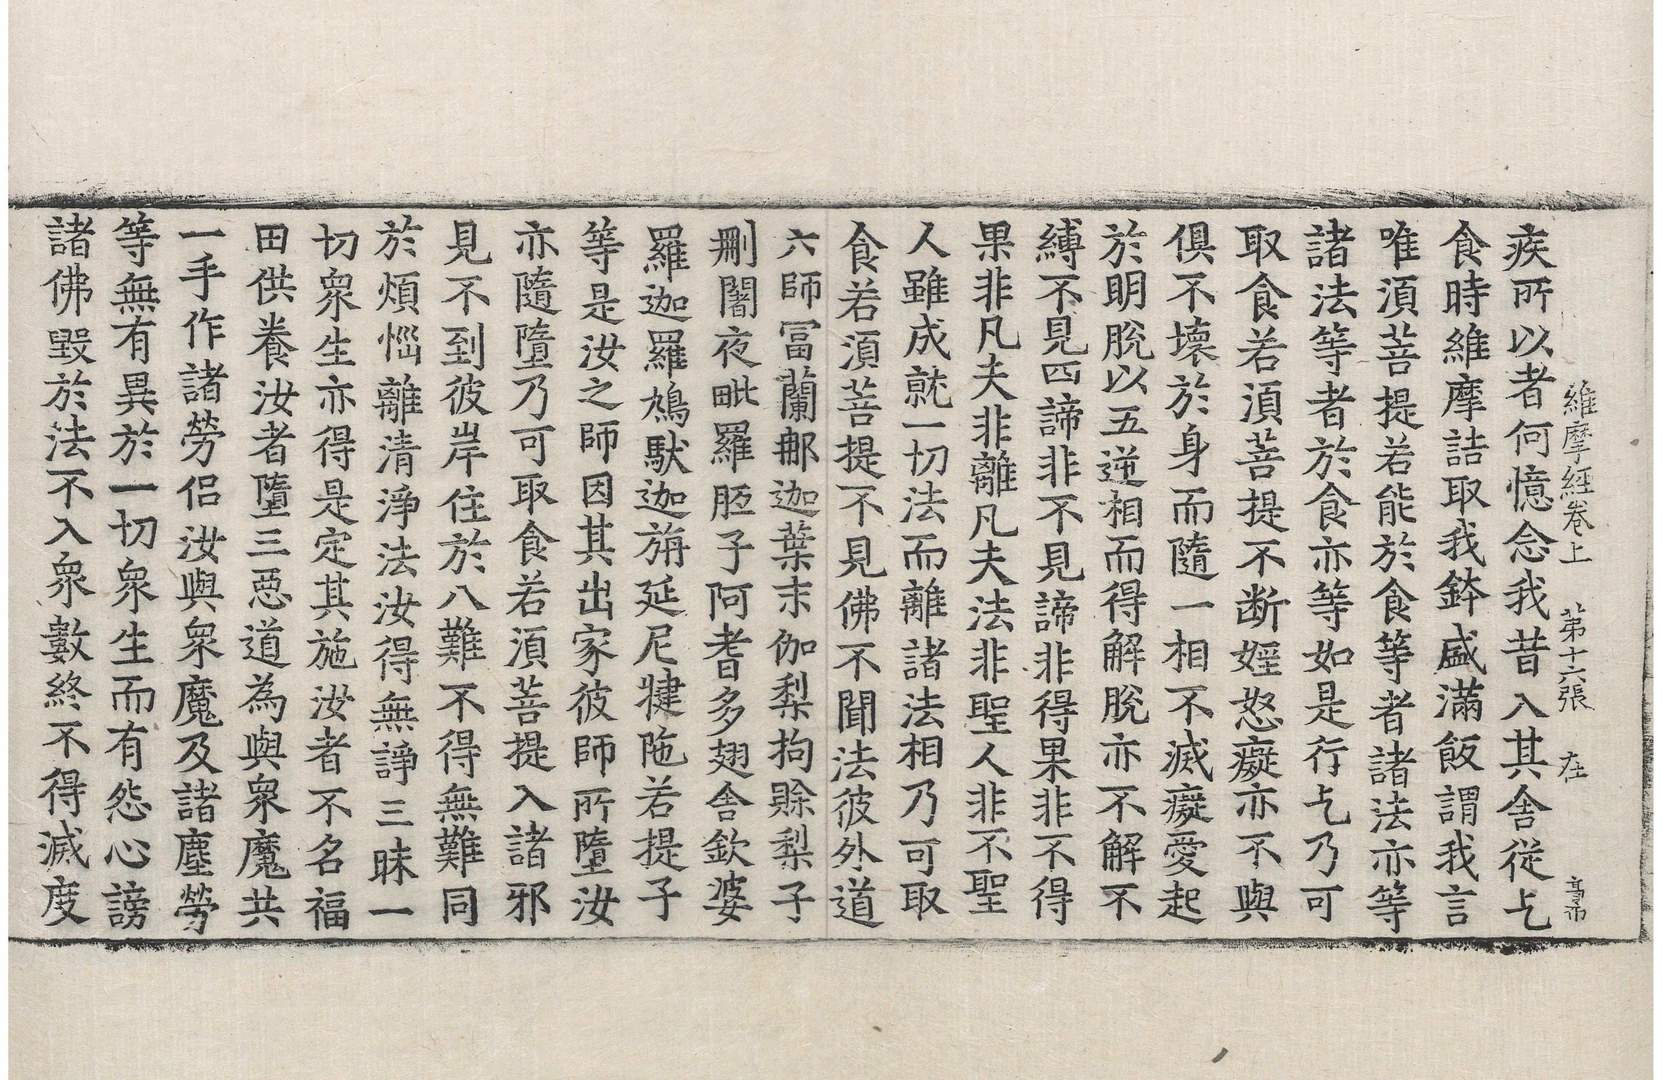 維摩經卷上 第十六張 在
疾所以者何憶念我昔入其舍從乞
食時維摩詰取我鉢盛滿飯謂我言
唯湏菩提若能於食等者諸法亦等
諸法等者於食亦等如是行乞乃可
取食若湏菩提不斷婬怒癡亦不與
俱不壞於身而隨一相不滅癡愛起
於明脫以五逆相而得解脫亦不解不
縛不見四諦非不見諦非得果非不得
果非凡夫非離凡夫法非聖人非不聖
人雖成就一切法而離諸法相乃可取
食若湏菩提不見佛不聞法彼外道
六師冨蘭那迦葉末伽梨拘賒梨子
刪闍夜毗羅胝子阿耆多翅舍欽婆
羅迦羅鳩馱迦旃延尼犍陁若提子
等是汝之師因其出家彼師所墮汝
亦隨墮乃可取食若湏菩提入諸邪
見不到彼岸住於八難不得無難同
於煩惱離清淨法汝得無諍三昧一
切眾生亦得是定其施汝者不名福
田供養汝者墮三惡道為與眾魔共
一手作諸勞侣汝與眾魔及諸塵勞
等無有異於一切眾生而有怨心謗
諸佛毀於法不入眾數終不得滅度